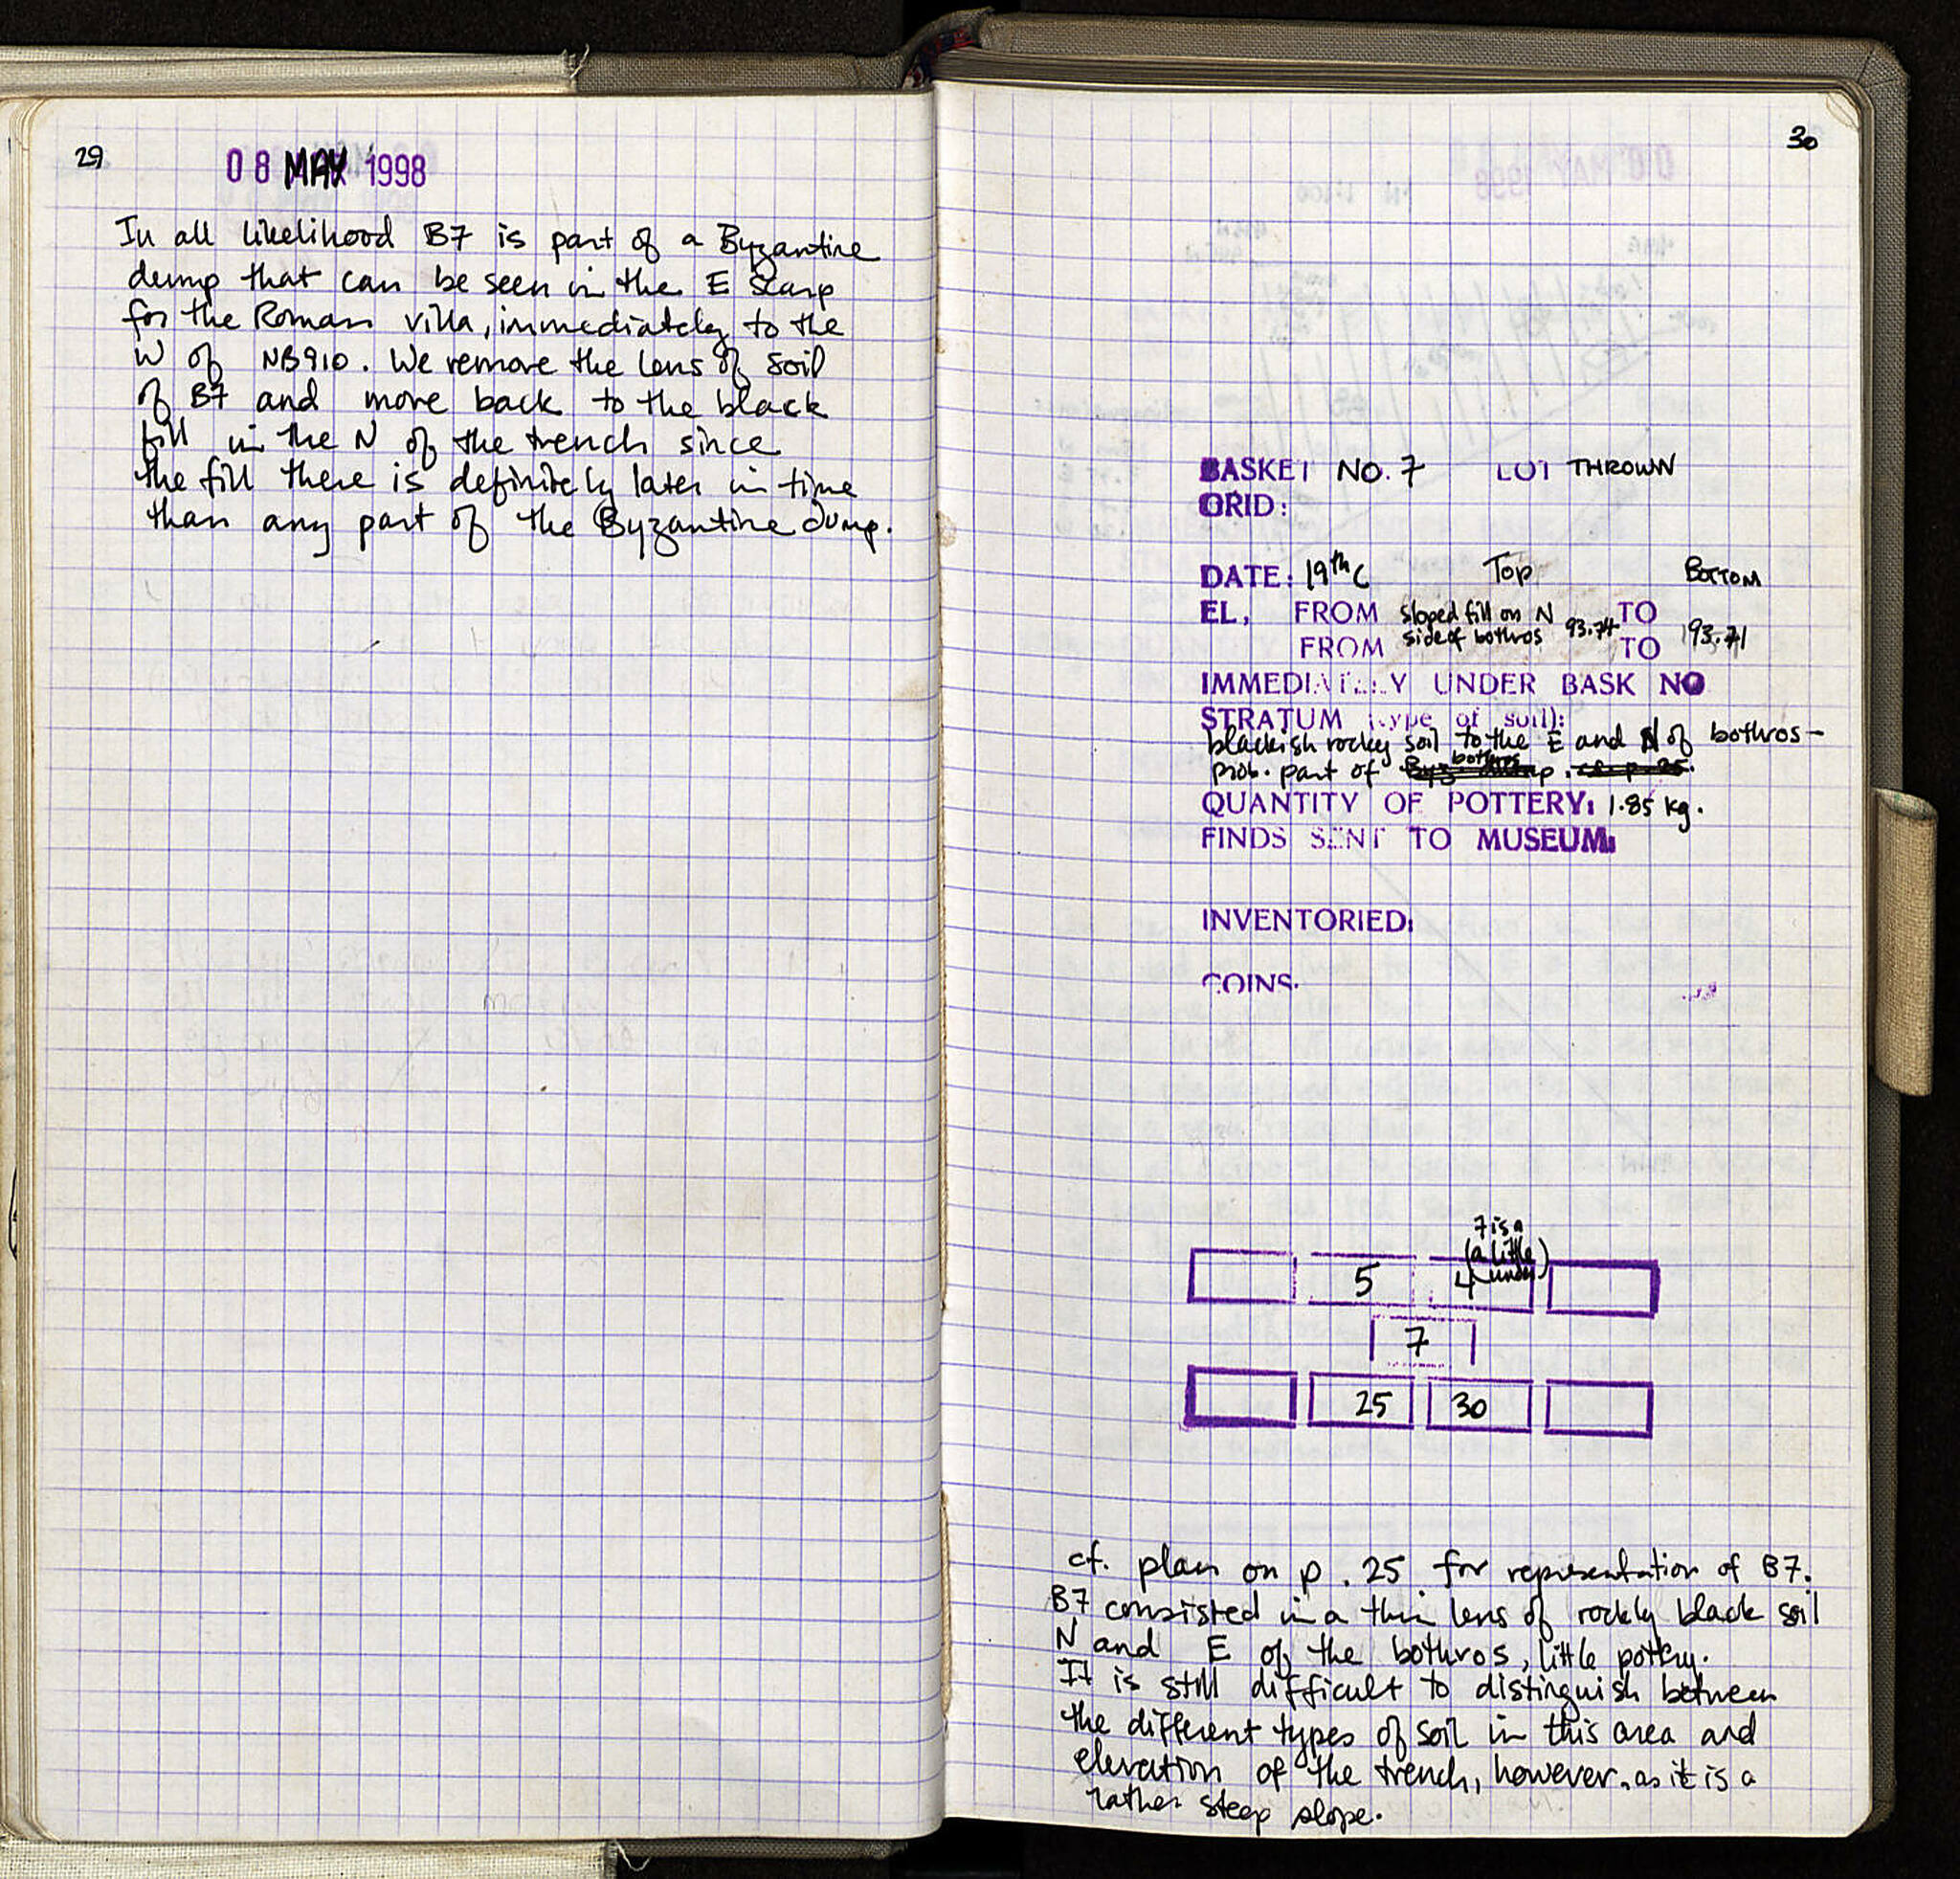 29
08 MAY 1998
In all likelihood B7 is part of a Byzantine
dump that can be seen in the E scarp
for the Roman villa, immediately to the
W of NB910. We remove the lens of soil
of B7 and move back to the black
fill in the N of the trench since
the fill there is definitely later in time
than any part of the Byzantine dump.
30
BASKET NO. 7 LOT THROWN
GRID:
DATE: 19th C Top BOTTOM
EL, FROM sloped fill on N 93.74 TO 93.71
FROM side of bothros TO
IMMEDIATELY UNDER BASK NO
STRATUM (type of soil):
blackish rocky soil to the E and N of bothros -
prob. part of bothros
QUANTITY OF POTTERY: 1.85 kg.
FINDS SENT TO MUSEUM:
INVENTORIED:
COINS:
7 is a
(a little
under)
5 4
7
25 30
cf. plan on p. 25 for representation of B7.
B7 consisted in a thin lens of rockly black soil
N and E of the bothros, little pottery.
It is still difficult to distinguish between
the different types of soil in this area and
elevation of the trench, however, as it is a
rather steep slope.